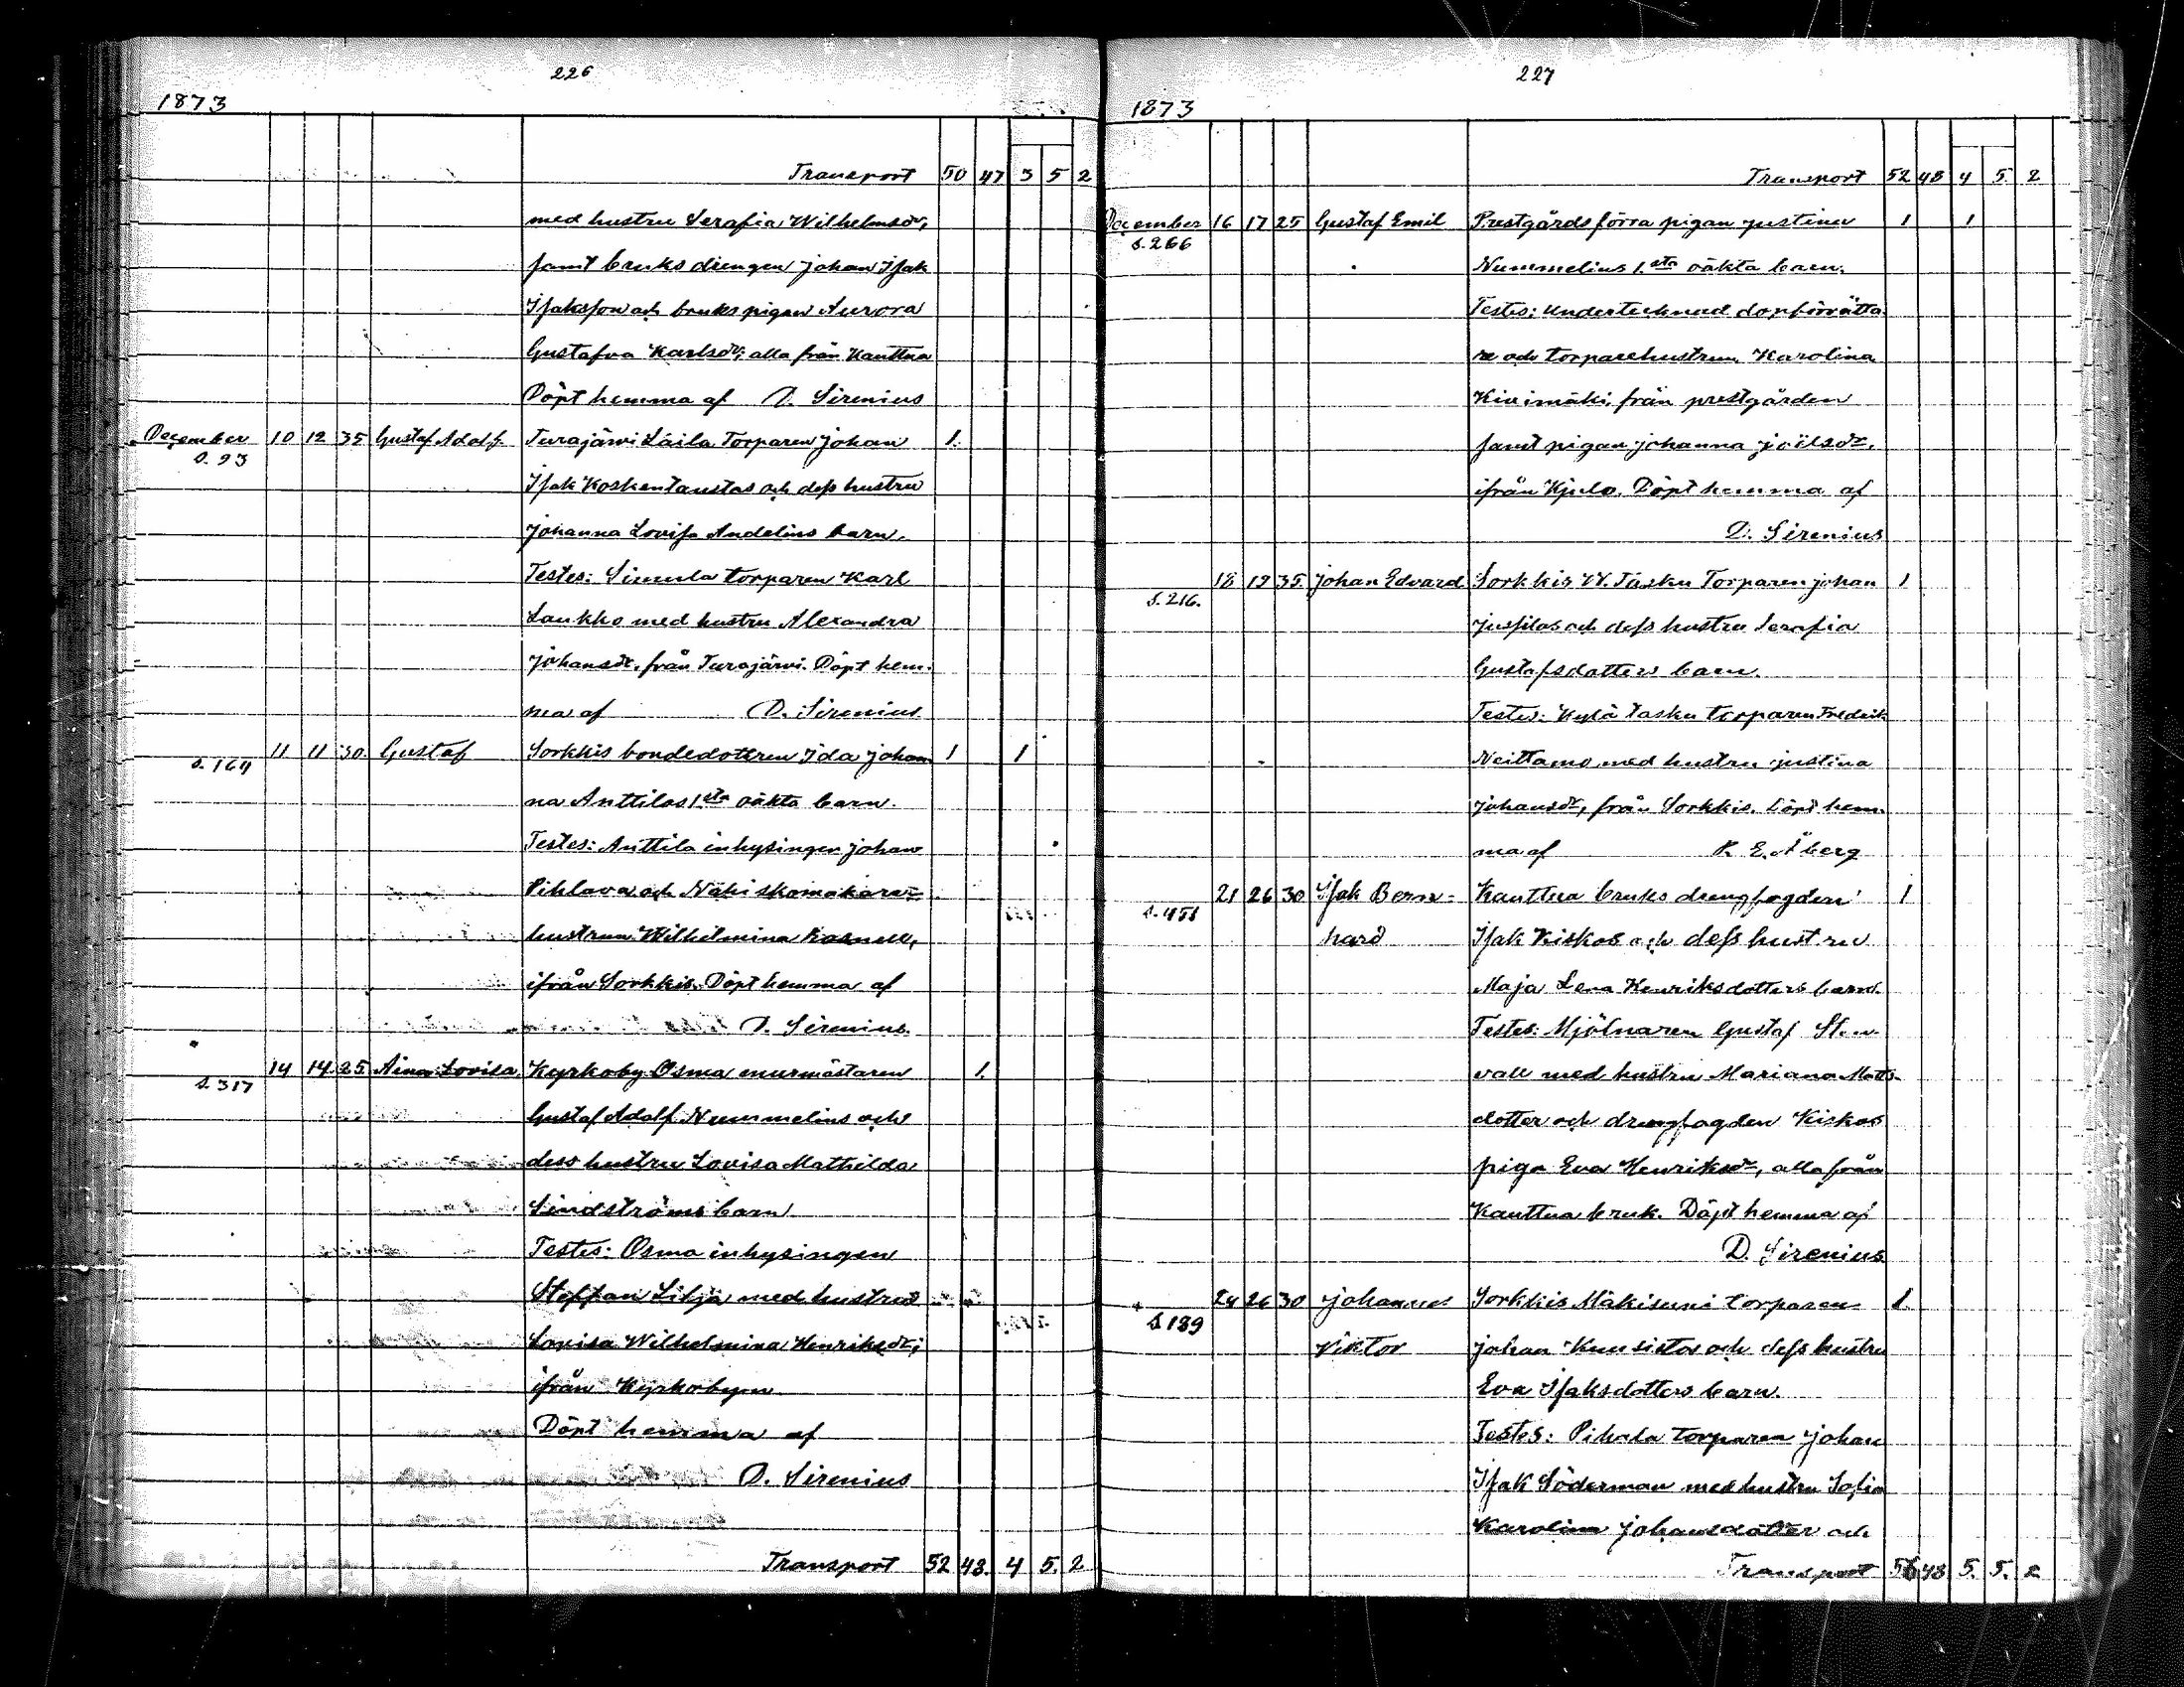 226
1873
Transport 50 47 3 5 2
med hustru Serafia Wilhelmsdr,
samt bruksdrengen Johan Isak
Isaksson och brukspigan Aurora
Gustafva Karlsdr; alla från Kauttua
Döpt hemma af D. Sirenius
December 10 12 35 Gustaf Adolf. Turajärvi Laila Torparen Johan 1.
S. 93
Isak Koskentaustas och dess hustru
Johanna Lovisa Andelins barn.
Testes: Simula torparen Karl
Laukko med hustru Alexandra
Johansdr. från Turajärvi. Döpt hem-
ma af D. Sirenius
11 11 30. Gustaf Sorkkis bondedottren Ida Johan 1 1
S. 164
na Anttilas 1sta oäkta barn.
Testes: Anttila inhysingen Johan
Pihlava och Nähi skomakare-
hustrun Wilhelmina
ifrån Sorkkis. Döpt hemma af
D. Sirenius.
14 14 25 Aina Lovisa. Kyrkoby Osma murmästaren 1.
S. 317
Gustaf Adolf Nummelins och
dess hustru Lovisa Mathilda
Lindströms barn
Testes: Osma inhysingen
Steffan Lilja med hustru
Lovisa Wilhelmina Henriksdr;
ifrån Kyrkobyn
Döpt hemma af
D. Sirenius
Transport 52 48. 4 5. 2
227
1873
Transport 52 48 4 5. 2
December 16 17 25 Gustaf Emil Prestgårds förra pigan Justina 1 1
S. 266
Nummelins 1.sta oäkta barn.
Testes: Undertecknad dopförrätta-
re och torparehustrun Karolina
Kivimäki, från prestgården
samt pigan Johanna Joëlsdr.
ifrån Kjulo. Döpt hemma af
D. Sirenius
18 19 35. Johan Edvard Sorkkis W. Tasku Torparen Johan 1
S. 216.
Jussilas och dess hustru Serafia
Gustafsdotters barn.
Testes: Kylä Tasku torparen Fredrik
Neittamo med hustru Justina
Johansdr, från Sorkkis. Döpt hem-
ma af K. E. Åberg
21 26 30 Isak Bern- Kauttua bruks drengfogden 1
S. 451
hard Isak Kiskos och dess hustru
Maja Lena Henriksdotters barn.
Testes: Mjölnaren Gustaf Sten-
vall med hustru Mariana Matts-
dotter och drengfogden Kiskos
piga Eva Henriksdr, alla från
Kauttua bruk. Döpt hemma af
D. Sirenius.
24 26 30 Johannes Sorkkis Mäkisuni torparen 1.
S 189
Viktor Johan Kuusistos och dess hustru
Eva Isaksdotters barn.
Testes: Pihala torparen Johan
Isak Söderman med hustru Sofia
Karolina Johansdotter och
Transport 56 48 5. 5. 2